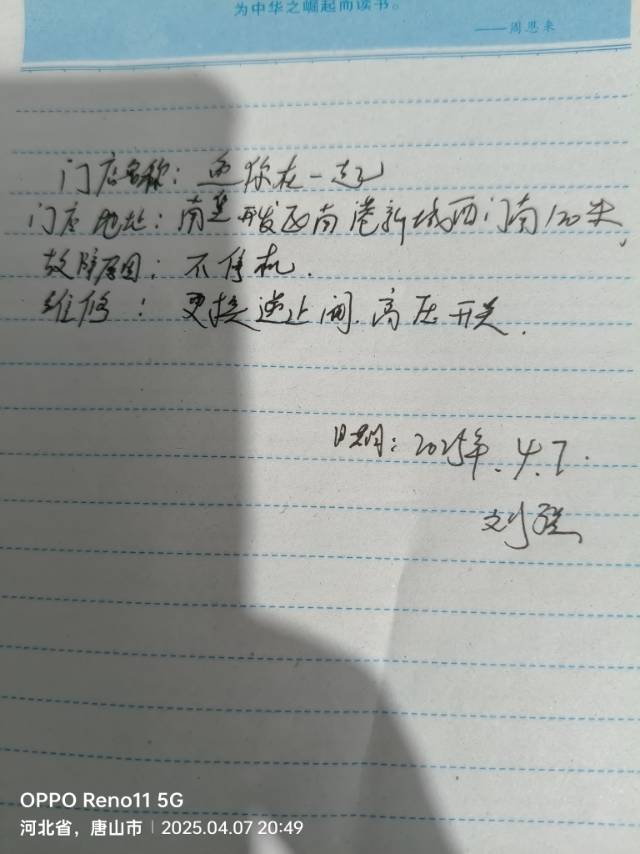 为中华之崛起而读书。
——周恩来
门店名称：鱼你在一起
门店地址：南堡开发区南港新城西门南120米，
故障原因：不停机.
维修：更换逆止阀.高压开关.
日期：2025年.4.7.
刘强
OPPO Reno11 5G
河北省，唐山市 | 2025.04.07 20:49